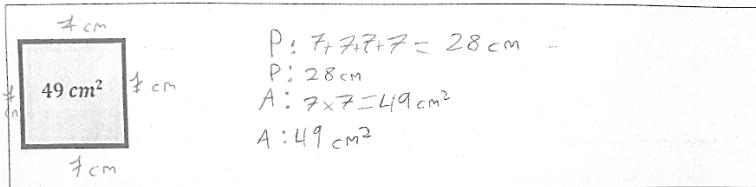 7 cm
49 cm²
7 cm
7 cm
7 cm
P: 7+7+7+7= 28 cm
P: 28 cm
A: 7×7=49 cm²
A: 49 cm²